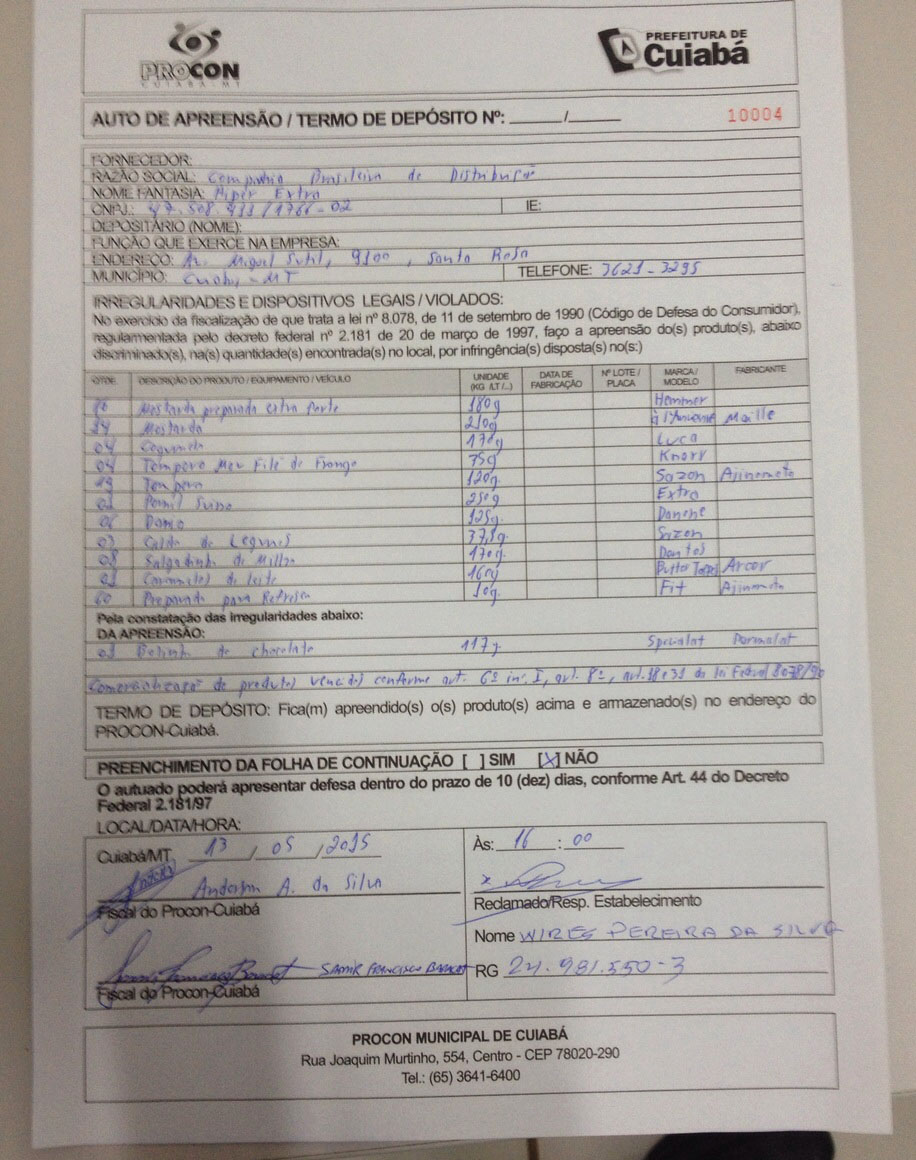 PROCON
CUIABÁ-MT
PREFEITURA DE
Cuiabá
AUTO DE APREENSÃO / TERMO DE DEPÓSITO Nº: ______/______ 10004
FORNECEDOR:
RAZÃO SOCIAL: Companhia Brasileira de Distribuição
NOME FANTASIA: Hiper Extra
CNPJ.: IE:
DEPOSITÁRIO (NOME):
FUNÇÃO QUE EXERCE NA EMPRESA:
ENDEREÇO: Av. Miguel Sutil, 9100, Santa Rosa
MUNICÍPIO: Cuiabá-MT TELEFONE: 3621-3295
IRREGULARIDADES E DISPOSITIVOS LEGAIS / VIOLADOS:
No exercício da fiscalização de que trata a lei nº 8.078, de 11 de setembro de 1990 (Código de Defesa do Consumidor),
regulamentada pelo decreto federal nº 2.181 de 20 de março de 1997, faço a apreensão do(s) produto(s), abaixo
discriminado(s), na(s) quantidade(s) encontrada(s) no local, por infringência(s) disposta(s) no(s:)
QTDE. DESCRIÇÃO DO PRODUTO / EQUIPAMENTO / VEÍCULO UNIDADE (KG /LT /...) DATA DE FABRICAÇÃO Nº LOTE / PLACA MARCA / MODELO FABRICANTE
Mostarda preparada extra forte 180g Hemmer
Mostarda 210g à l'Ancienne Maille
04 170g Luca
04 Tempero Meu Filé de Frango 75g Knorr
19 Tempero 120g Sazon Ajinomoto
Pernil Suino 250g Extra
125g Danone
03 Caldo de Legumes 37,5g Sazon
08 Salgadinho de Milho 170g
Caramelos de leite 160g Butter Toffees Arcor
60 Preparado para Refresco 10g Fit Ajinomoto
Pela constatação das irregularidades abaixo:
DA APREENSÃO:
de chocolate 117g Parmalat
Comercialização de produtos vencidos conforme art. 6º inc. I, art. 8º, art. 18 e 31 da lei Federal 8078/90
TERMO DE DEPÓSITO: Fica(m) apreendido(s) o(s) produto(s) acima e armazenado(s) no endereço do
PROCON-Cuiabá.
PREENCHIMENTO DA FOLHA DE CONTINUAÇÃO [ ] SIM [X] NÃO
O autuado poderá apresentar defesa dentro do prazo de 10 (dez) dias, conforme Art. 44 do Decreto
Federal 2.181/97
LOCAL/DATA/HORA:
Cuiabá/MT 13 / 05 / 2015 Às: 16 : 00
Anderson A. da Silva
Fiscal do Procon-Cuiabá Reclamado/Resp. Estabelecimento
Nome WIRES PEREIRA DA SILVA
SAMIR FRANCISCO RG 24.981.550-3
Fiscal do Procon-Cuiabá
PROCON MUNICIPAL DE CUIABÁ
Rua Joaquim Murtinho, 554, Centro - CEP 78020-290
Tel.: (65) 3641-6400